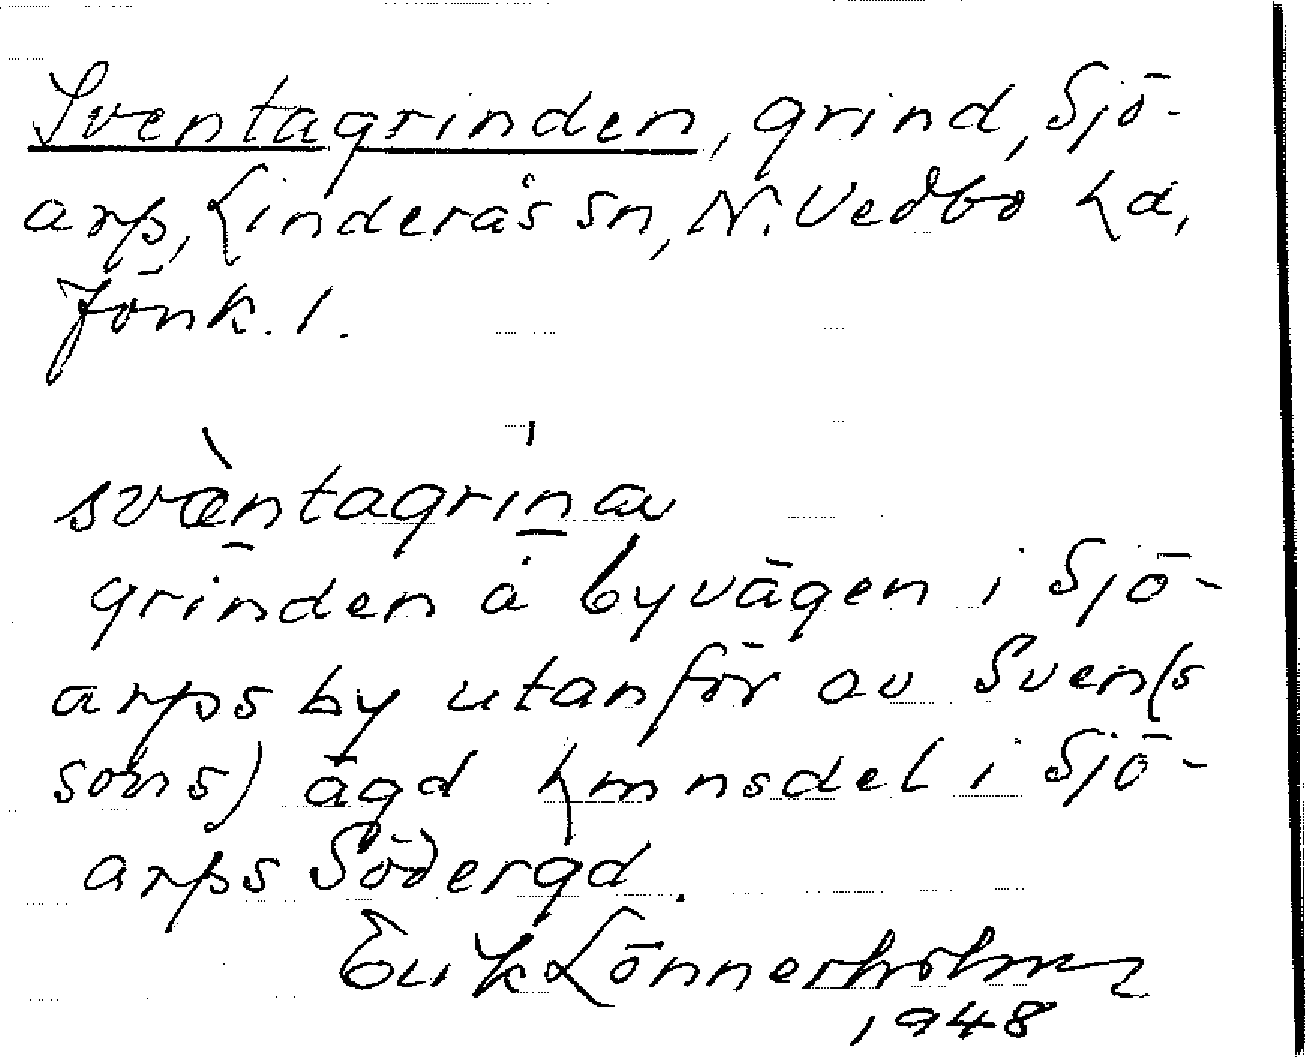 Sventagrinden, grind, Sjö-
arp, Linderås sn, N. Vedbo hd,
Jönk. l.
svæ̀ntagrìnan
grinden å byvägen i Sjö-
arps by utanför av Sven(s
sons) ägd hmnsdel i Sjö-
arps Södergd.
Erik Lönnerholm
1948